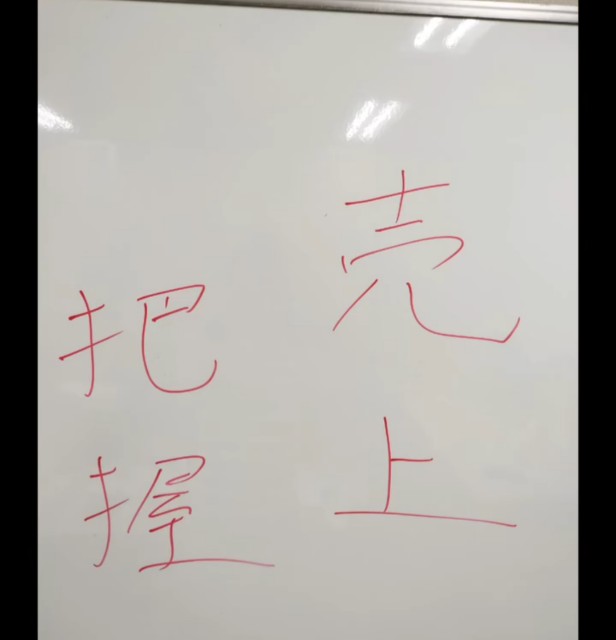 売上
把握